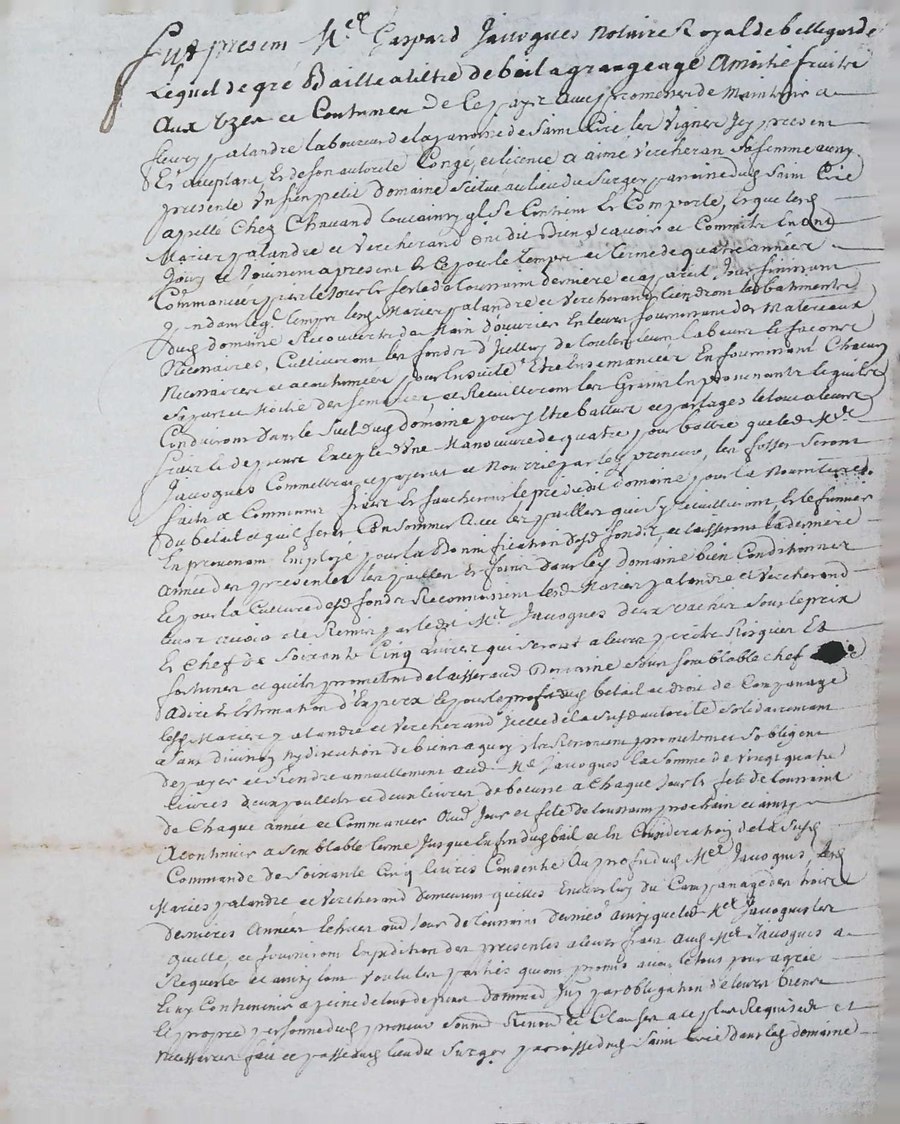 Fut present Me Gaspard Jacoques Notaire Royal de bellegarde
Lequel de gré Baille a tiltre de bail a grangeage Amoitié fruits
Aux Uzes et Coutumes de Ce pays avec promesse de Maintenir a
fleury palandre laboureur de la parroisse de Saint Cire les Vignes Icy present
Et aceptant, Et de son autorité Congé, et licence a aimé Vercheran Sa femme aussy
presente Un sien petit Domaine Scitué au lieu du Surgey parroisse dud Saint Cire
appellé Chez Chavand tout ainsy qu'il Se Contient Et Comporte, lesquels
Mariez palandre et Vercherand ont dit bien Scavoir et Connoitre En ont
Jouy et Jouissent a present Et Ce pour le temps et terme de quatre années
Commancées par le Jour et feste de toussaint derniere et a pareil Jour finissant
pendant leq temps lesd Mariez palandre et Vercherand tiendront les batiments
dud domaine Recouverts de Main d'ouvrier En leurs fournissant des Materiaux
Necessaires, Cultiveront les fonds d'Icelluy de touttes leurs labeurs et façons
Necessaires et acoutumées pour Ensuitte Etre Ensemancées En fournissant Chacun
sa part et Moitié des semences et Recuilliront les Grains En provenants lesquels
Conduiront dans le Suel dud domaine pour y Etre battus et partagés le tout a leurs
fraix et depens Excepté d'Une Manoeuvre de quatre pour battre que led Me
Jacoques Commettra et payera et Nourrie par les preneurs, les fossés Seront
faits a Communs fraix Et faucheront le pré dudit domaine pour la Nourriture
du betail et qu'il feront Consommer Avec les pailles qui s'y recuilliront, Et le fumier
En provenant Employé pour la Bonnification desd fonds, et laisseront la derniere
Année des presentes les pailles Et foins dans led Domaine bien Conditionnés
Et pour la Culture desd fonds Reconnoissent lesd Mariez palandre et Vercherand
avoir receu et Remis par led Me Jacoques deux vaches Sous le prix
Et Chef de Soixante Cinq livres qui seront a leurs perils Risques Et
fortunes et qu'ils promettent de laisser aud Domaine Sous Semblable chef
a dire et Estimation d'Experts Et pour le profit dud betail et droit de Companage
lesd Mariez palandre et Vercherand Icelle de la Susd autorité solidairement
Sans division Ny discution de biens a quoy Ils Renoncent promettent S'obligent
de payer et Rendre annuellement aud Me Jacoques la Somme de Vingt quatre
livres deux poullets et deux livres de beurre a Chaque Jour et fete de toussaint
de Chaque année et Commancer Aud Jour et fete de toussaint prochain et ainsy
A Continuer a Semblable terme Jusque En fin dud bail et En Considération de la Susd
Commande de Soixante Cinq livres Consentie Au profit dud Me Jacoques, lesd
Mariez palandre et Vercherand demeurent quittes Envers luy du Companage des trois
dernieres Années Echües aud Jour de toussaint dernier ainsy que led Me Jacoques les
quitte, et fourniront Expedition des presentes a leurs frais aud Me Jacoques a
Requeste et ainsy l'ont Voulu les parties qu'ont promis avoir le tout pour agree
Et Ny Contrevenir a peine de tous depens Dommages Int par Obligation de leurs biens
Et propre personne dud preneur Soumd Renond et Clauses a Ce plus Requises et
Necessaires fait et passé aud lieu du Surgey parroisse dud Saint Cire dans led domaine